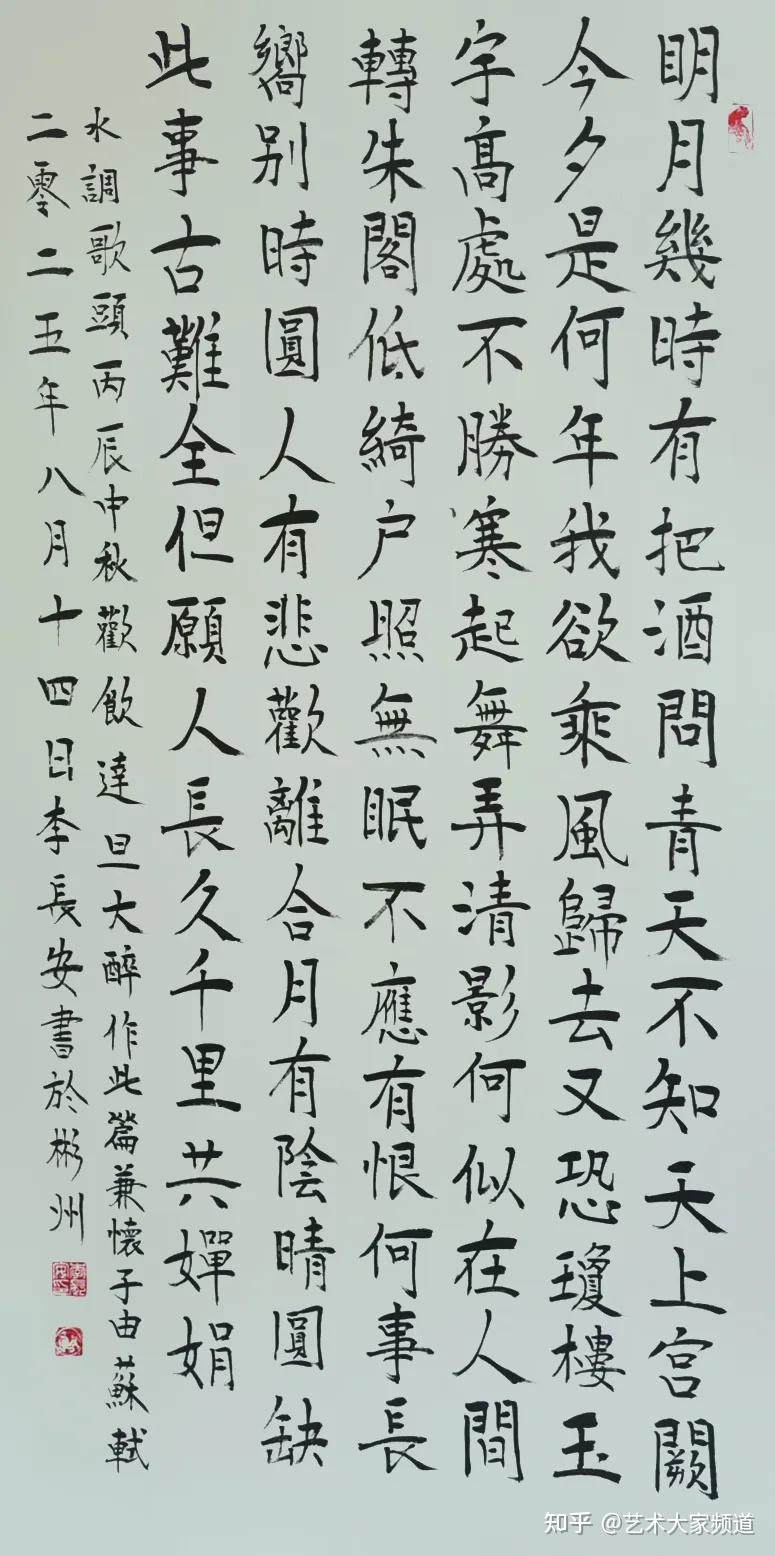 明月幾時有把酒問青天不知天上宫闕
今夕是何年我欲乘風歸去又恐瓊樓玉
宇髙處不勝寒起舞弄清影何似在人間
轉朱閣低綺户照無眠不應有恨何事長
嚮别時圓人有悲歡離合月有陰晴圓缺
此事古難全但願人長久千里共嬋娟
水調歌頭丙辰中秋歡飲達旦大醉作此篇兼懷子由蘇軾
二零二五年八月十四日李長安書於彬州
知乎 @艺术大家频道